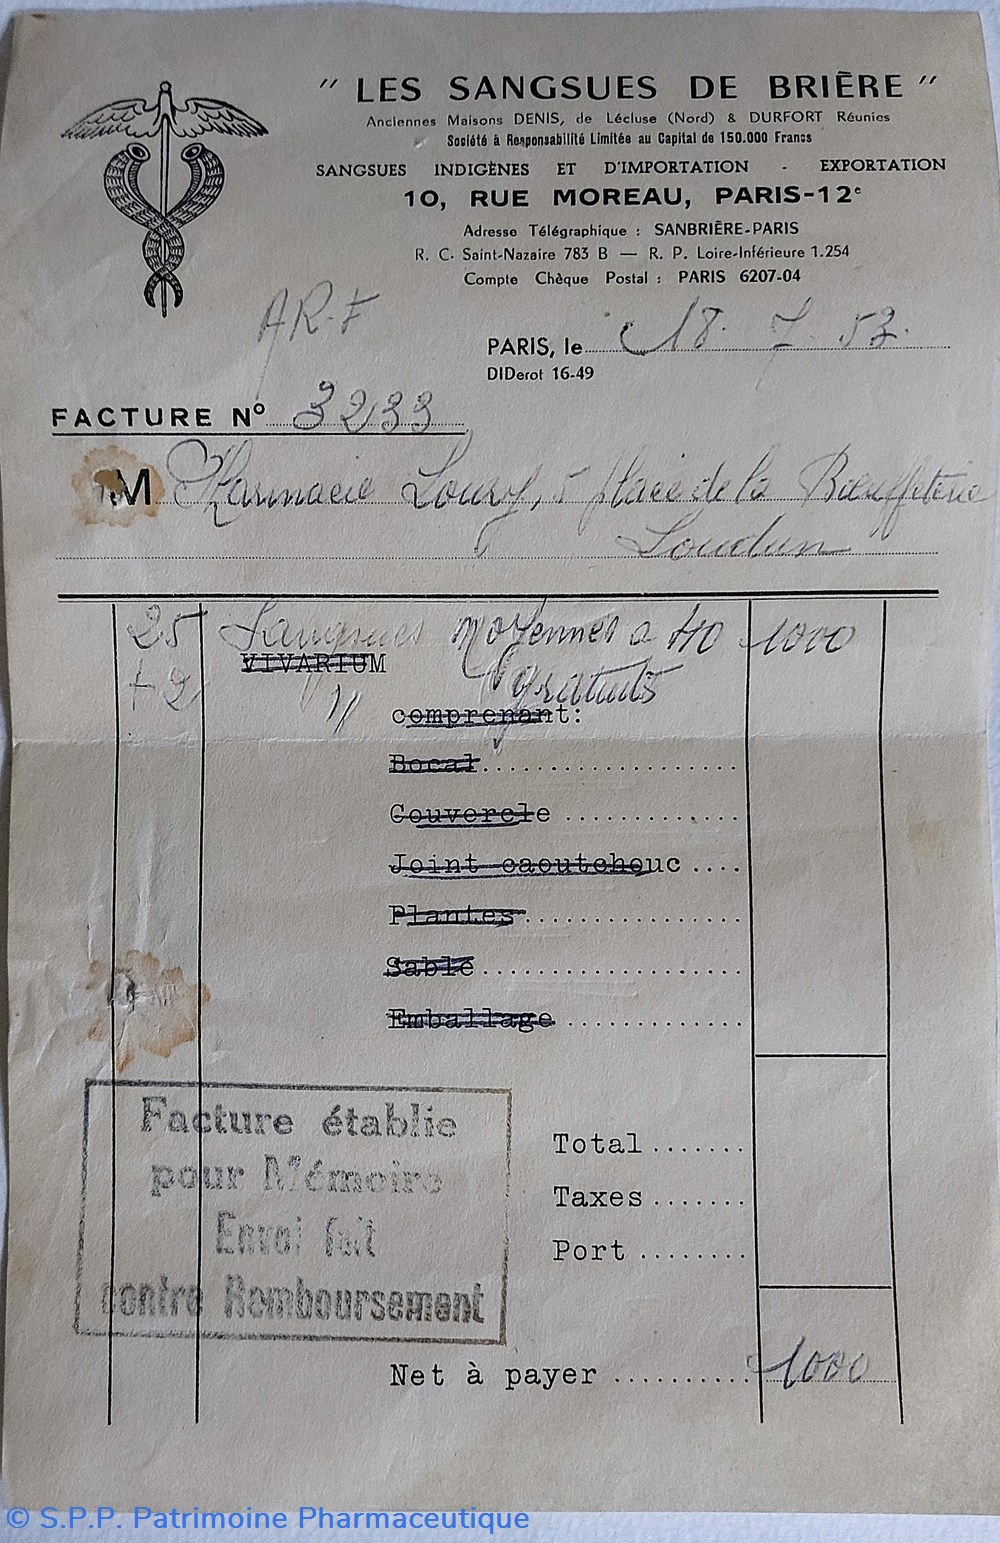 " LES SANGSUES DE BRIÈRE "
Anciennes Maisons DENIS, de Lécluse (Nord) & DURFORT Réunies
Société à Responsabilité Limitée au Capital de 150.000 Francs
SANGSUES INDIGÈNES ET D'IMPORTATION - EXPORTATION
10, RUE MOREAU, PARIS-12e
Adresse Télégraphique : SANBRIÈRE-PARIS
R. C. Saint-Nazaire 783 B — R. P. Loire-Inférieure 1.254
Compte Chèque Postal : PARIS 6207-04
AR.F
PARIS, le 18. 7. 53.
DIDerot 16-49
FACTURE N° 3233
M Pharmacie Loury, 5 place de la Bœuffeterie
Loudun
25 Sangsues moyennes a 40 1000
VIVARIUM
+ 2 " gratuits
comprenant:
Bocal
Couvercle
Joint caoutchouc
Plantes
Sable
Emballage
Facture établie
pour Mémoire
Envoi fait
contre Remboursement
Total
Taxes
Port
Net à payer 1000
© S.P.P. Patrimoine Pharmaceutique